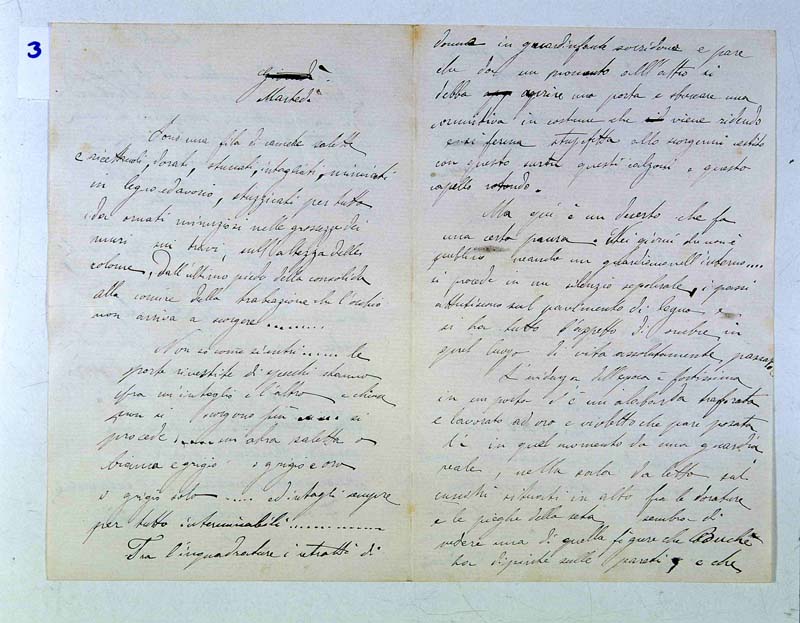 3
Martedì
Sono una fila di camere salette
e ricettuoli, dorati, stuccati, intagliati, miniati
in legno ed avorio, stuzzicati per tutto
i dei ornati minuziosi nelle grossezze dei
muri sui travi, sull'altezza delle
colonne, dall'ultimo piede della consolida
alla cornice della trabeazione che l'occhio
non arriva a scorgere
Non si come si entri le
porte rivestite di specchi stanno
fra un intaglio e l'altro e chiuse
non si scorgono più si
procede un altra saletta o
bianca e grigio o grigio e oro
o grigio solo ed intagli sempre
per tutto interminabili
Tra l'inquadrature i ritratti di
donna in guardinfante sorridono e pare
che da un momento all'altro si
debba aprire una porta e sboccare una
comitiva in costume che viene ridendo
e si ferma stupefatta allo scorgermi vestito
con questo questi calzoni e questo
capello rotondo.
Ma qui è un deserto che fa
una certa paura. Nei giorni che non è
pubblico un guardiano nell'interno
si procede in un silenzio sepolcrale, i passi
attutiscono sul pavimento di legno e
si ha tutto l'aspetto di ombre in
quel luogo di vita assolutamente passata
L'evidenza dell'epoca è fortissima
in un posto c'è un'alabarda traforata
e lavorata ad oro e violetto che pare posata
lì in quel momento da una guardia
reale, nella sala da letto sul
situati in alto fra le dorature
e le pieghe della seta sembra di
vedere una di quelle figure che Bouché
ha dipinte sulle pareti e che